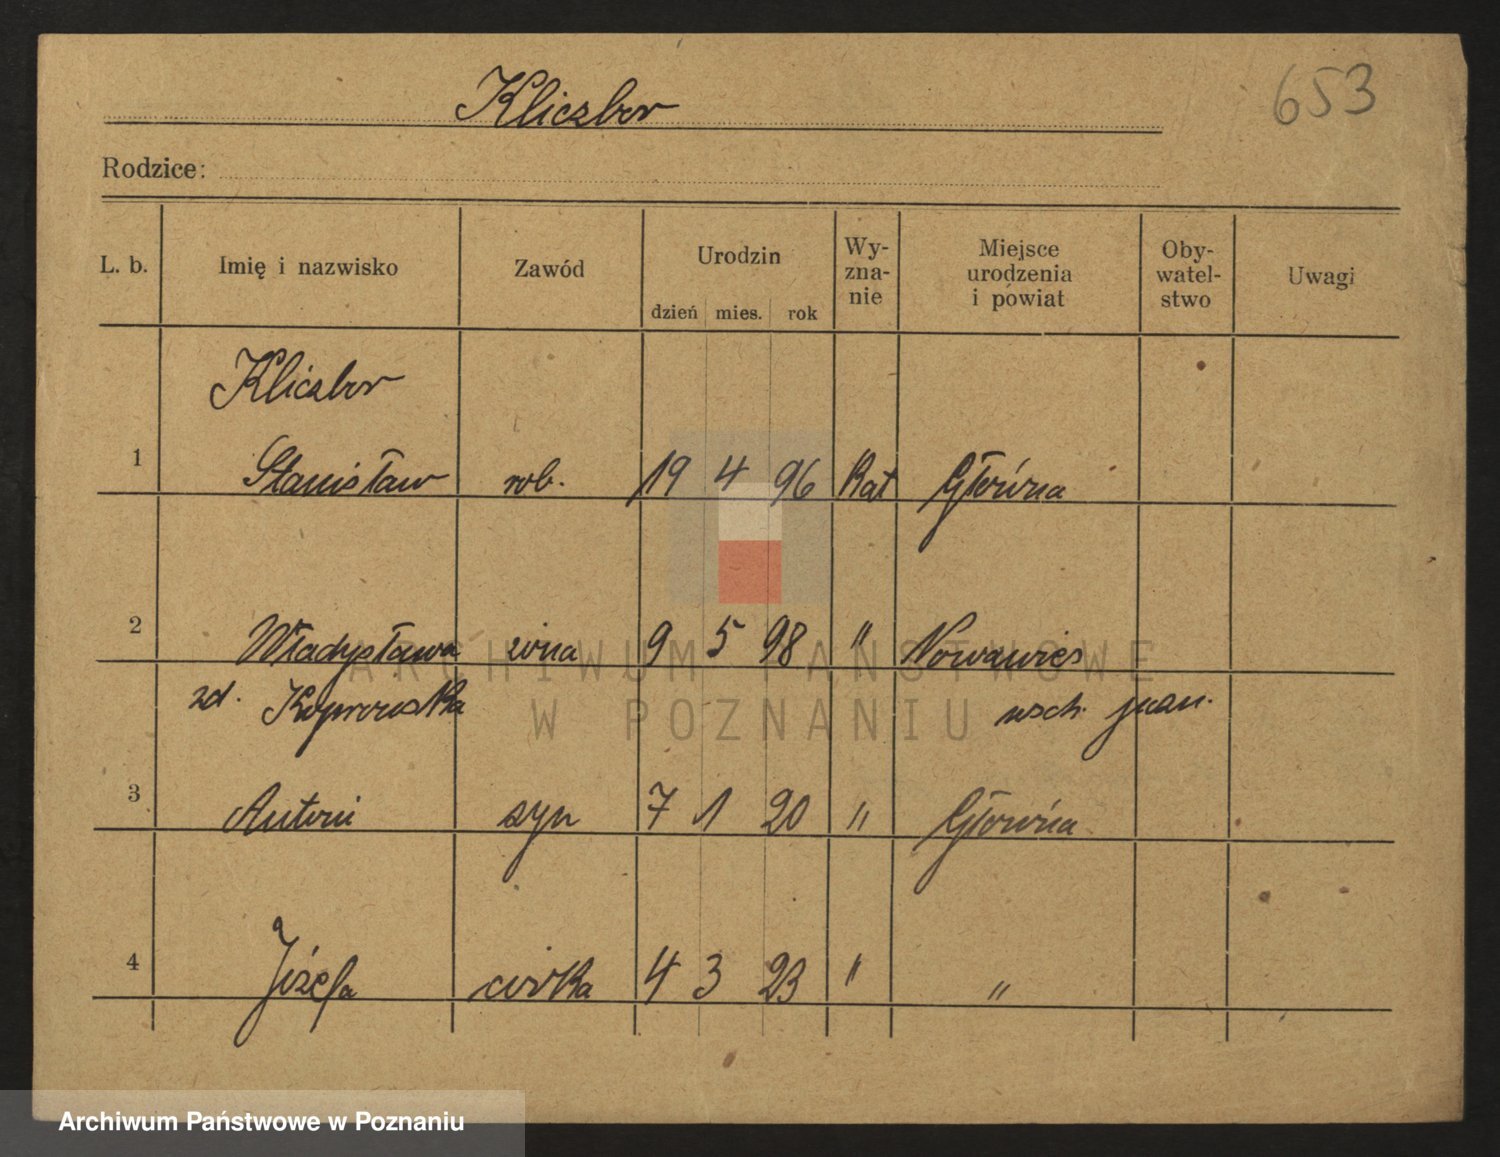 Kliczbor
653
Rodzice:
L. b. Imię i nazwisko Zawód Urodzin dzień mies. rok Wy-zna-nie Miejsce urodzenia i powiat Oby-watel-stwo Uwagi
Kliczbor
1 Stanisław rob. 19 4 96 Kat Główna
2 Władysława żona 9 5 98 " Nowawieś
zd. Koprowska wsch.
3 Antoni syn 7 1 20 " Główna
4 Józefa córka 4 3 23 " "
ARCHIWUM PAŃSTWOWE
W POZNANIU
Archiwum Państwowe w Poznaniu